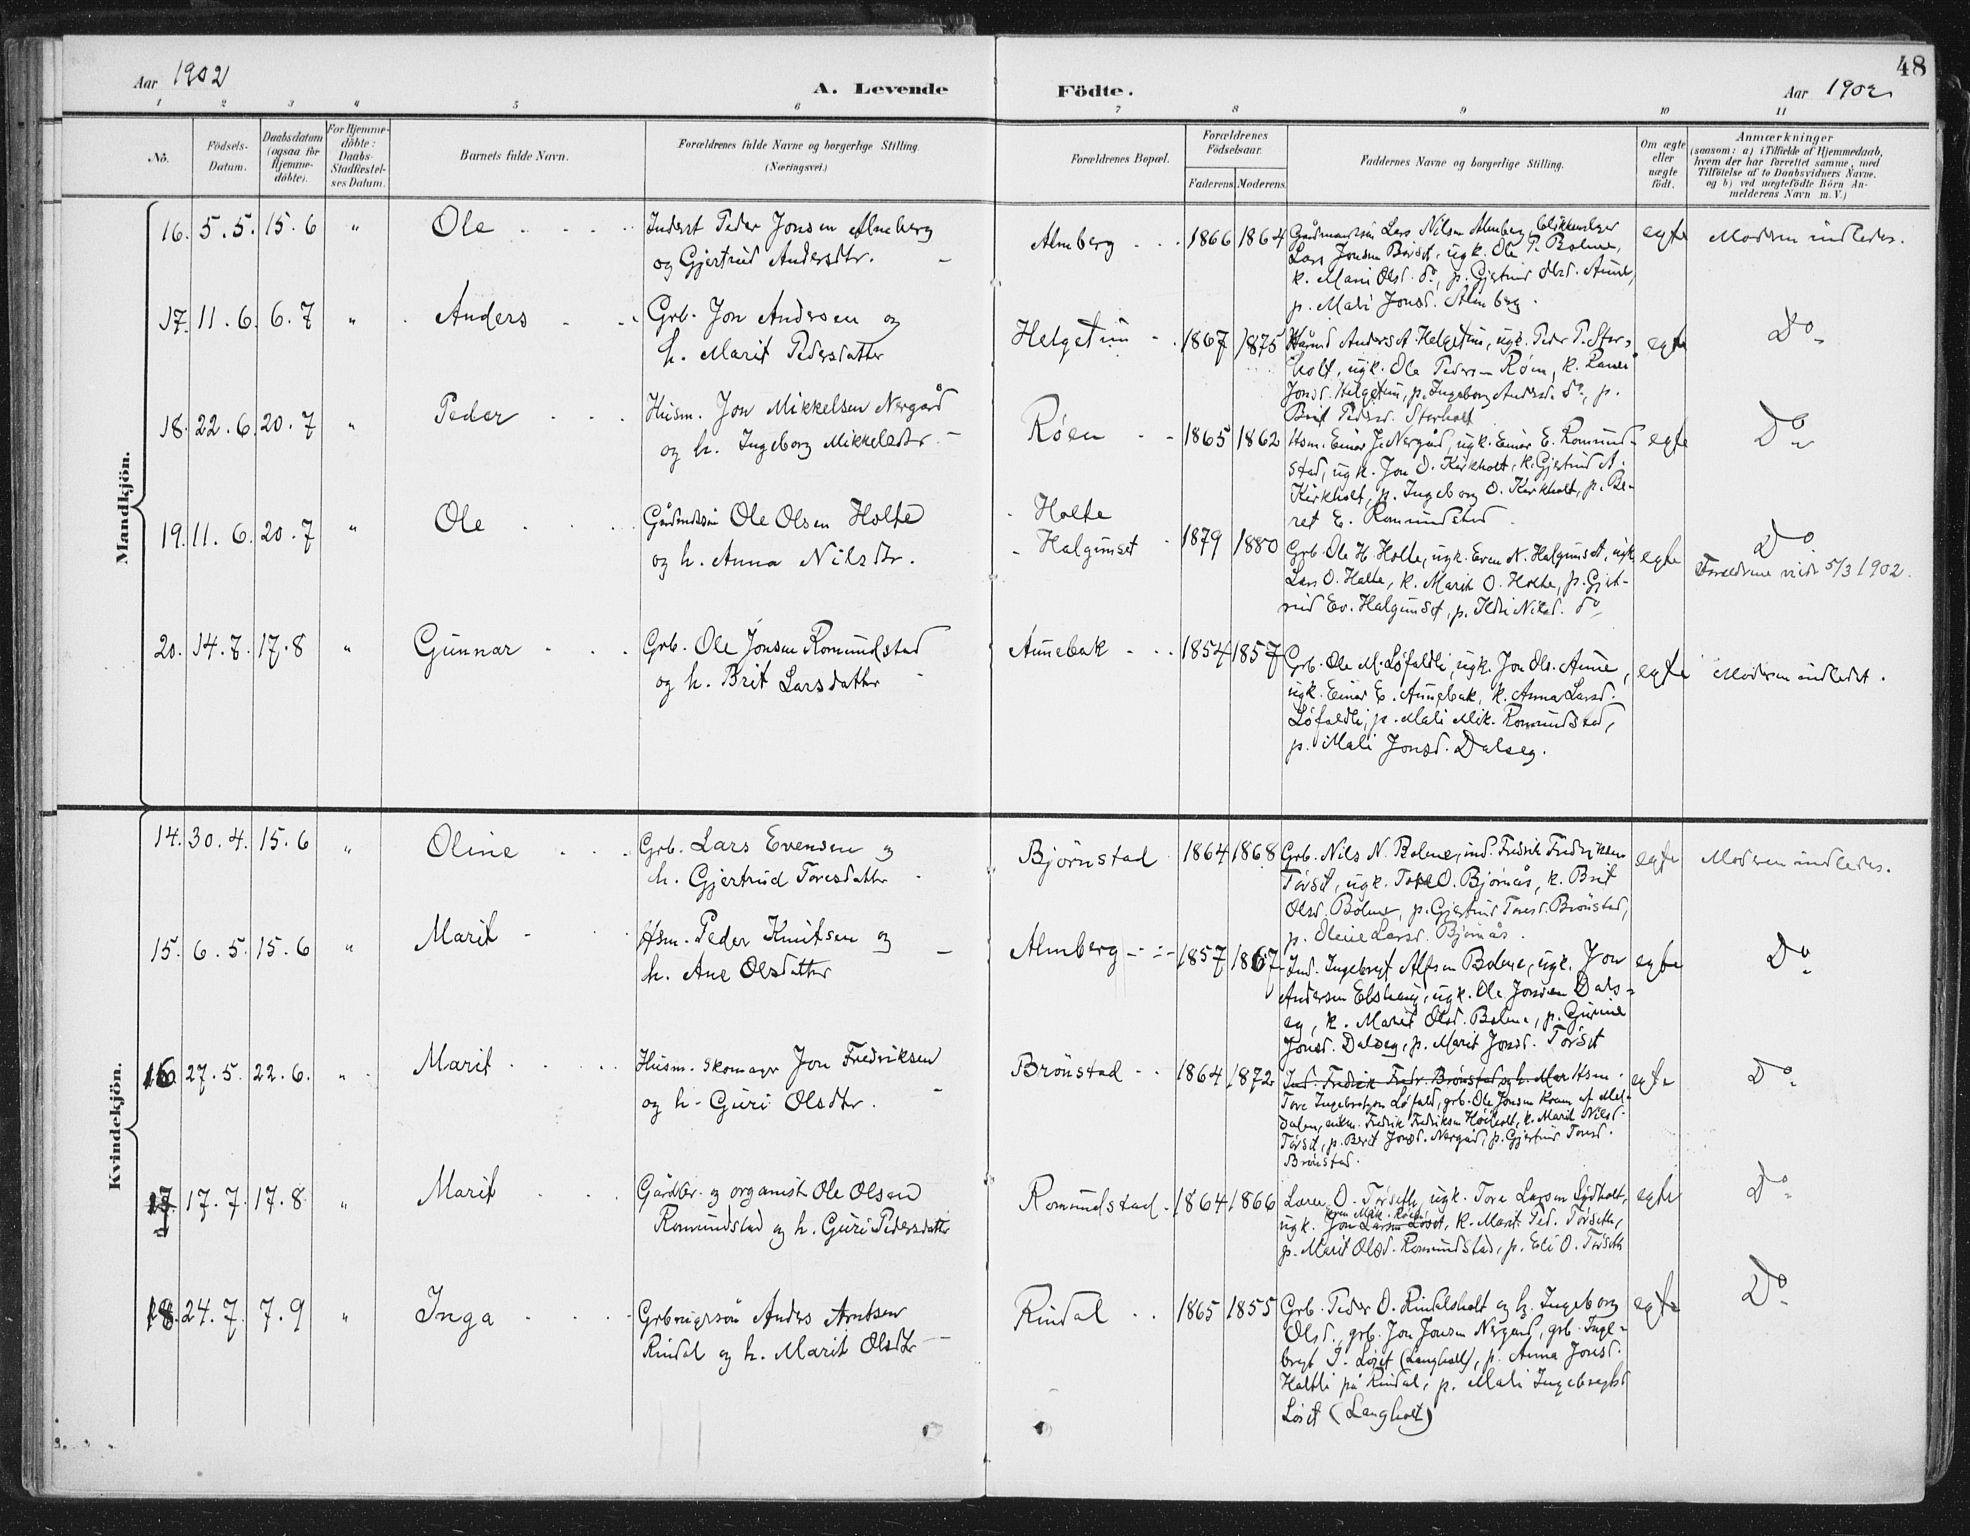 48
Aar 1902
A. Levende Födte.
Aar 1902
1 2 3 4 5 6 7 8 9 10 11
No.
Födsels-Datum.
Daabsdatum (ogsaa for Hjemme-döbte).
For Hjemme-döbte: Daabs-Stadfæstel-ses Datum.
Barnets fulde Navn.
Forældrenes fulde Navne og borgerlige Stilling. (Næringsvei.)
Forældrenes Bopæl.
Forældrenes Födselsaar.
Faderens Moderens
Faddernes Navne og borgerlige Stilling.
Om ægte eller uægte födt.
Anmærkninger
(saasom: a) i Tilfælde af Hjemmedaab,
hvem der har forrettet samme, med
Tilföielse af to Daabsvidners Navne.
og b) ved uægtefödte Börn An-
melderens Navn m. V.)
Mandkjön.
16. 5.5. 15.6 " Ole
Inderst Peder Jonsen Almberg
og Gjertrud Andersdtr.
Almberg 1866 1864
Gårdmandssön Lars Nilsen Almberg, blikkenslager
Lars Jonsen Börset, ugk. Ole P. Bolme,
k. Marit Olsd. do, p. Gjertrud Olsd. Aune,
p. Mali Jonsd. Almberg.
egte Moderen indledet.
17. 11.6. 6.7 " Anders
Grb. Jon Andersen og
h. Marit Pedersdatter
Helgetun 1867 1875
Anders A. Helgetun, ugk. Peder P. Stor-
holt, ugk. Ole Pedersen Røen, k.
Jonsd. Helgetun, p. Ingeborg Andersd. do, p.
Brit Pedersd. Storholt
egte Do
18. 22.6. 20.7 " Peder
Husm. Jon Mikkelsen Nergård
og h. Ingeborg Mikkelsdtr.
Røen 1865 1862
Hsm. Einar J. Nergård, ugk. Einar E. Romund-
stad, ugk. Jon O. Kirkholt, k. Gjertrud A.
Kirkholt, p. Ingeborg O. Kirkholt, p. Be-
ret E. Romundstad.
egte Do
19. 11.6. 20.7 " Ole
Gårdmandssön Ole Olsen Holte
og h. Anna Nilsdtr.
Holte
Halgunset 1879 1880
Grb. Ole H. Holte, ugk. Even N. Halgunset, ugk.
Lars O. Holte, k. Marit O. Holte, p. Gjert-
rud Ev. Halgunset, p. Ildri Nilsd. do
egte Do
Forældrene viede 5/3 1902.
20. 14.7. 17.8 " Gunnar
Grb. Ole Jonsen Romundstad
og h. Brit Larsdatter
Aunebak 1854 1857
Grb. Ole M. Løfaldli, ugk. Jon Ols. Aune,
ugk. Einar E. Aunebak, k. Anna Larsd.
Løfaldli, p. Mali Mik. Romundstad,
p. Mali Jonsd. Dalseg.
egte Moderen indledet.
Kvindekjön.
14. 30.4. 15.6 " Oline
Grb. Lars Evensen og
h. Gjertrud Toresdatter
Bjørnstad 1864 1868
Grb. Nils N. Bolme, ind. Fredrik Fredriksen
Tørset, ugk. Tore O. Bjørnås, k. Brit
Olsd. Bolme, p. Gjertrud Toresd. Brönstad,
p. Oline Larsd. Bjørnås.
egte Moderen indledes.
15. 6.5. 15.6 " Marit
Hsm. Peder Knutsen og
h. Ane Olsdatter
Almberg 1857 1867
Ind. Ingebregt Alfsen Bolme, ugk. Jon
Andersen Elshaug, ugk. Ole Jonsen Dals-
eg, k. Marit Olsd. Bolme, p. Gurine
Jonsd. Dalseg, p. Marit Jonsd. Tørset
egte Do
16. 27.5. 22.6. " Marit
Husm. skomager Jon Fredriksen
og h. Guri Olsdtr.
Brönstad 1864 1872
Ind. Fredrik Fredr. Brönstad og h. Mar Hsm.
Tore Ingebretsen Løfald, grb. Ole Jonsen Kram af Mel-
dalen, Fredrik Fredriksen Høiholt, k. Marit Nilsd.
Tørset, p. Berit Jonsd. Nergård, p. Gjertrud Toresd.
Brønstad.
egte Do
17 17.7. 17.8 " Marit
Gårdbr. og organist Ole Olsen
Romundstad og h. Guri Pedersdatter
Romundstad 1864 1866
Lærer O. Tørseth, ugk. Tore Larsen Sydholt,
Even Mik. Røen
ugk. Jon Larsen Løset, k. Marit Ped. Tørseth,
p. Marit Olsd. Romundstad, p. Eli O. Tørseth
egte Do
18. 24.7. 7.9 " Inga
Grbrugersön Anders Arntsen
Rindal og h. Marit Olsdtr
Rindal 1865 1855
Grb. Peder O. Rindalsholt og h. Ingeborg
Olsd., grb. Jon Jonsen Nergård, grb. Inge-
bregt I. Løset (Langholt), p. Anna Jonsd.
Holtli på Rindal, p. Mali Ingebregtsd
Løset (Langholt)
egte Do